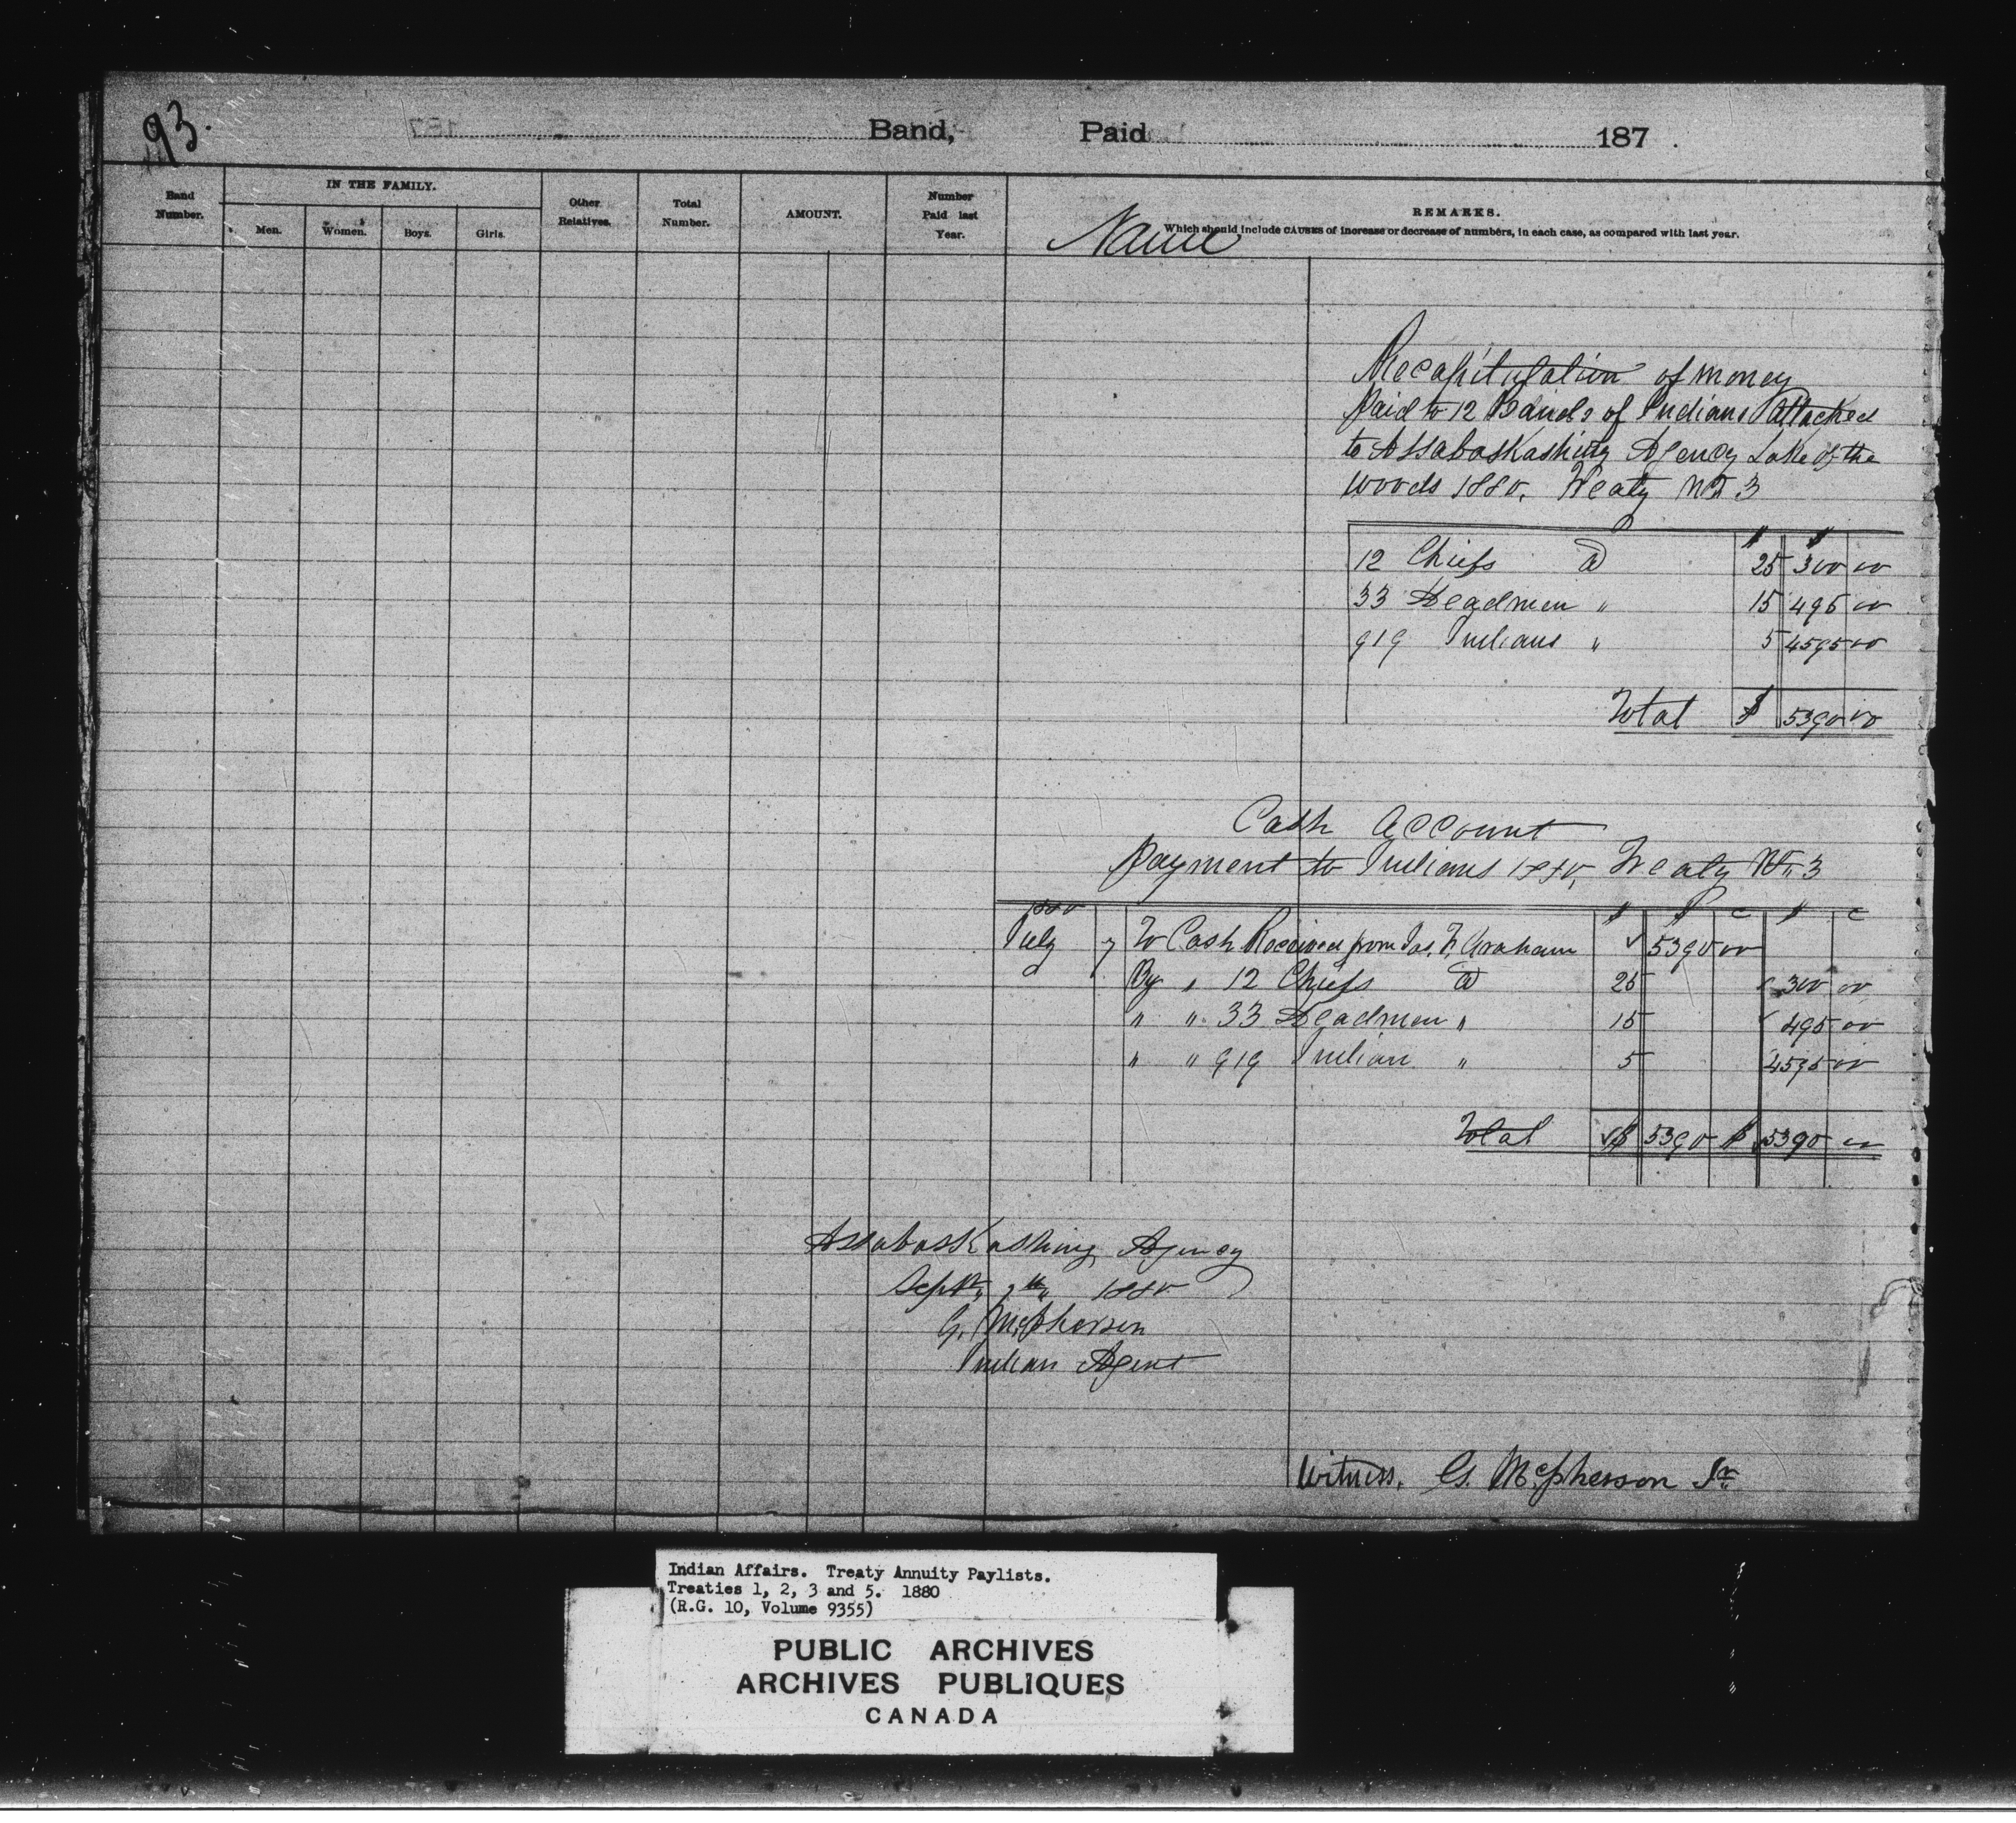 93.
Band, Paid 187 .
Band Number.
IN THE FAMILY.
Men. Women. Boys. Girls.
Other Relatives.
Total Number.
AMOUNT.
Number Paid last Year.
Name
REMARKS.
Which should include CAUSES of increase or decrease of numbers, in each case, as compared with last year.
Recapitulation of money
paid to 12 Bands of Indians attached
to Assabaskashing Agency Lake of the
Woods 1880. Treaty No 3
$ $
12 Chiefs @ 25 300 00
33 Headmen " 15 495 00
919 Indians " 5 4595 00
Total $ 5390 00
Cash Account
payment to Indians 1880, Treaty No 3
1880 $ $ c $ c
July 7 To Cash Received from Jas. F. Graham ✓ 5390 00
By " 12 Chiefs @ 25 ✓ 300 00
" " 33 Headmen " 15 ✓ 495 00
" " 919 Indian " 5 4595 00
Total ✓$ 5390 $ 5390 00
Assabaskashing Agency
Sept. 7th 1880
G. McPherson
Indian Agent
Witness. G. McPherson Sr.
Indian Affairs. Treaty Annuity Paylists.
Treaties 1, 2, 3 and 5. 1880
(R.G. 10, Volume 9355)
PUBLIC ARCHIVES
ARCHIVES PUBLIQUES
CANADA